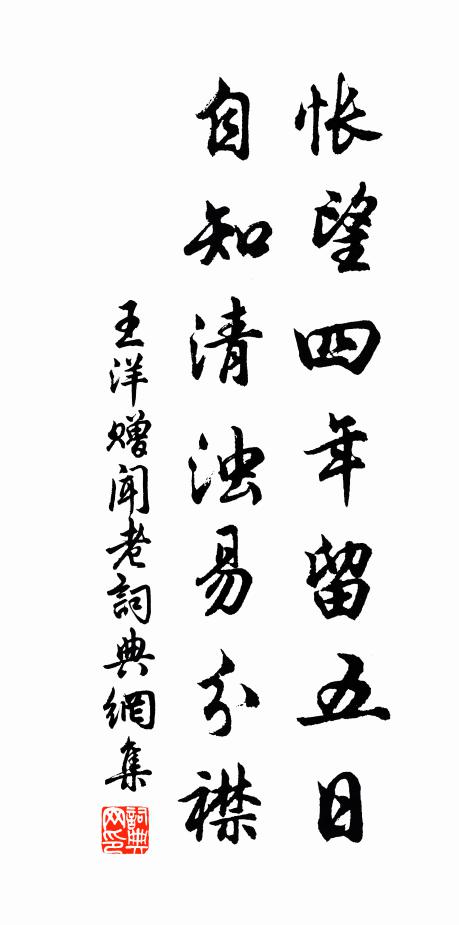 怅望四年留五日
自知清浊易分襟
王洋赠闻老詞典網集
詞典網印